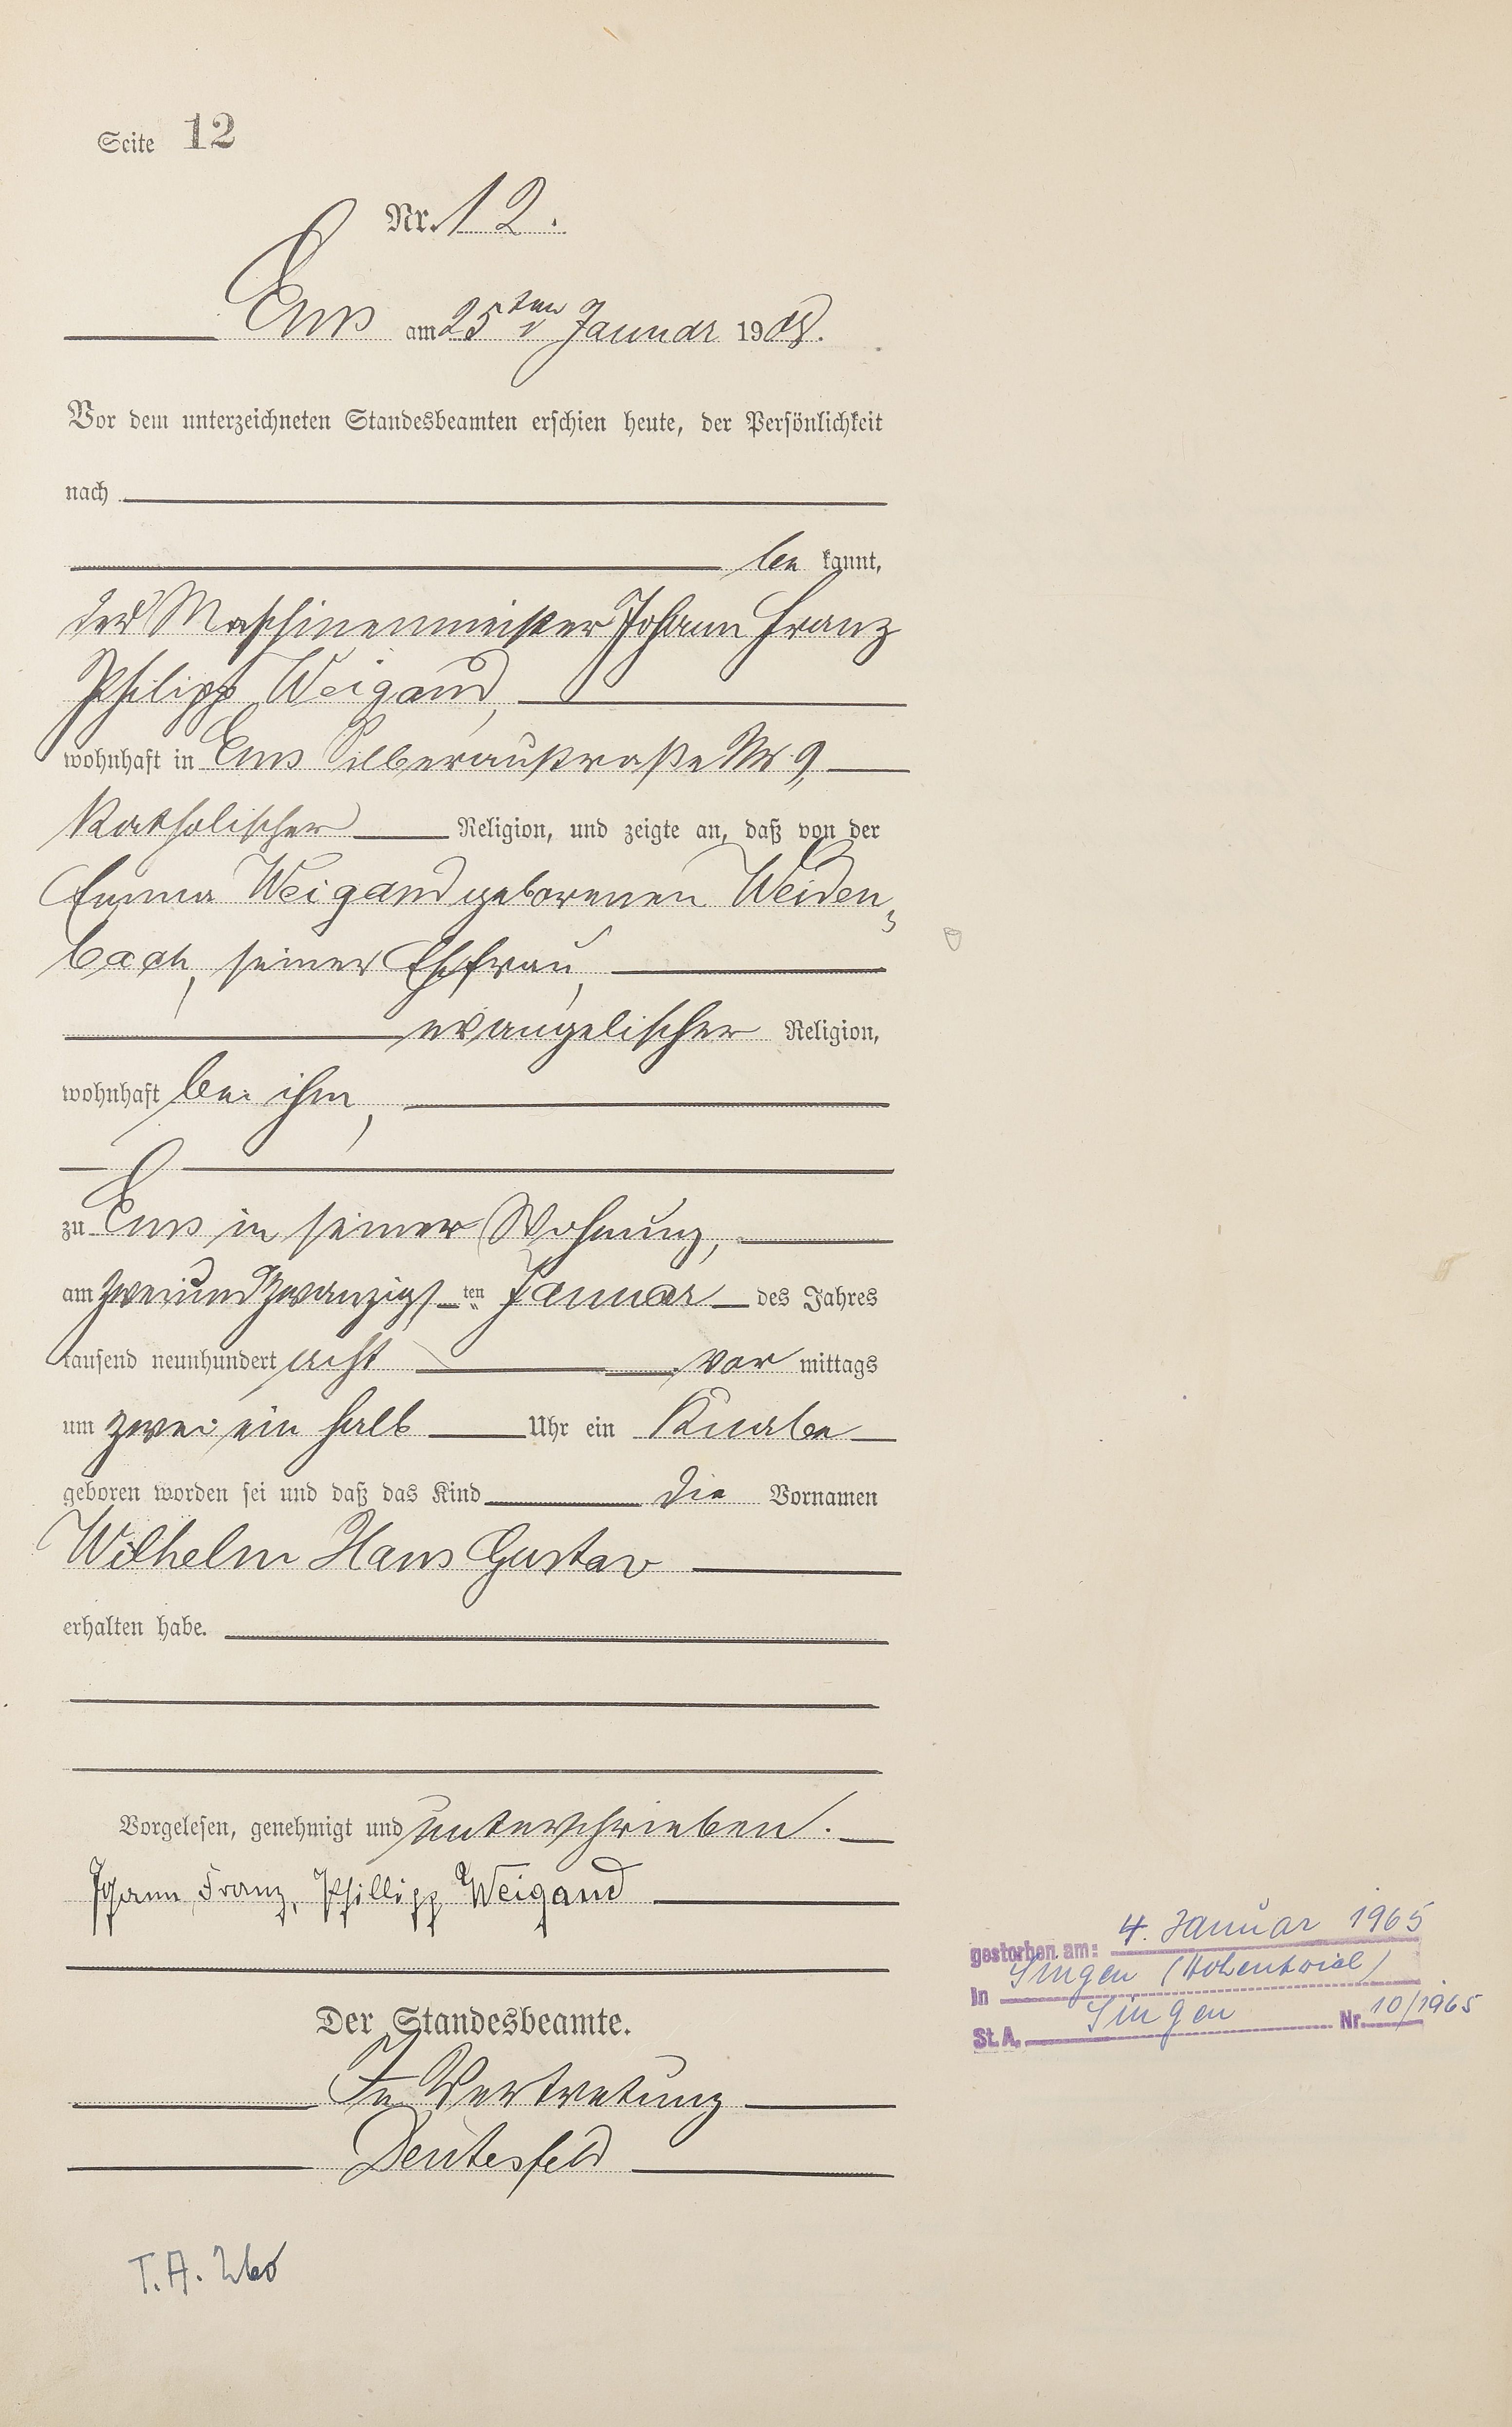 Seite 12
Nr. 12.
Ems am 25ten Januar 1908.
Vor dem unterzeichneten Standesbeamten erschien heute, der Persönlichkeit
nach
be kannt,
der Maschinenmeister Johann Franz
Philipp Weigand,
wohnhaft in Ems Silberaustraße Nr. 9,
katholischer Religion, und zeigte an, daß von der
Emma Weigand geborenen Weiden-
bach, seiner Ehefrau,
evangelischer Religion,
wohnhaft bei ihm,
zu Ems in seiner Wohnung,
am zweiundzwanzigsten Januar des Jahres
tausend neunhundert acht vor mittags
um zwei ein halb Uhr ein Knabe
geboren worden sei und daß das Kind die Vornamen
Wilhelm Hans Gustav
erhalten habe.
Vorgelesen, genehmigt und unterschrieben.
Johann Franz, Phillipp Weigand
Der Standesbeamte.
In Vertretung
Deutesfeld
gestorben am: 4. Januar 1965
in Singen (Hohentwiel)
St.A. Singen Nr. 10/1965
T.A. 260